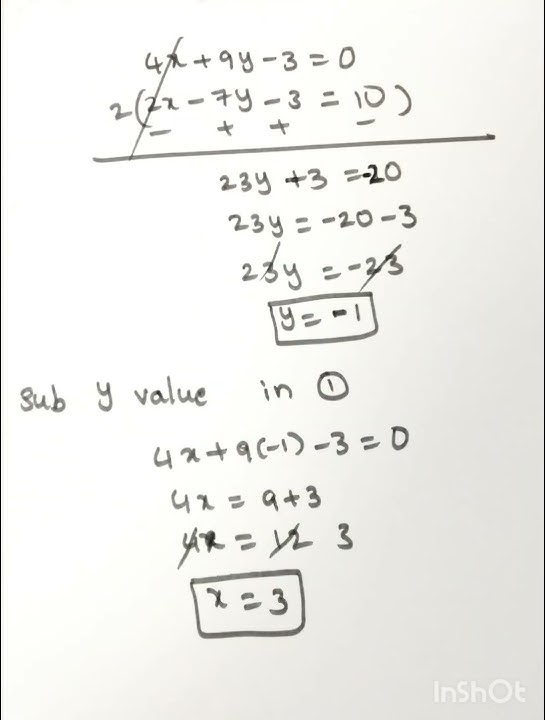 4x + 9y - 3 = 0
2(2x - 7y - 3 = 10)
- + + -
23y + 3 = -20
23y = -20 - 3
23y = -23
y = -1
sub y value in ①
4x + 9(-1) - 3 = 0
4x = 9 + 3
4x = 12 3
x = 3
InShOt